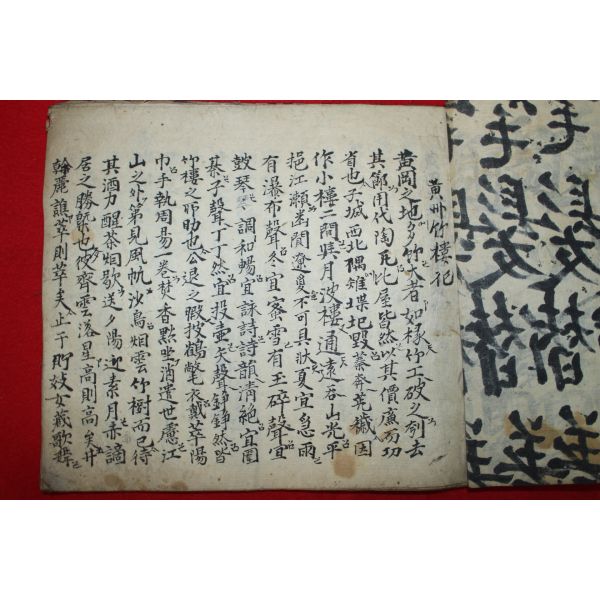 黃州竹樓記
黃岡之地多竹大者如椽竹工破之刳去
其節用代陶瓦比屋皆然以其價廉而功
省也子城西北隅雉堞圮毀蓁莽荒穢因
作小樓二間與月波樓通遠呑山光平
挹江瀨幽闃遼夐不可具狀夏宜急雨
有瀑布聲冬宜密雪有玉碎聲宜
鼓琴調和暢宜詠詩詩韻清絶宜圍
碁子聲丁丁然宜投壺矢聲錚錚然皆
竹樓之所助也公退之暇披鶴氅衣戴華陽
巾手執周易一卷焚香默坐消遣世慮江
山之外第見風帆沙鳥烟雲竹樹而已待
其酒力醒茶烟歇送夕陽迎素月亦謫
居之勝槩也彼齊雲落星高則高矣井
幹麗譙華則華矣止于貯妓女藏歌舞